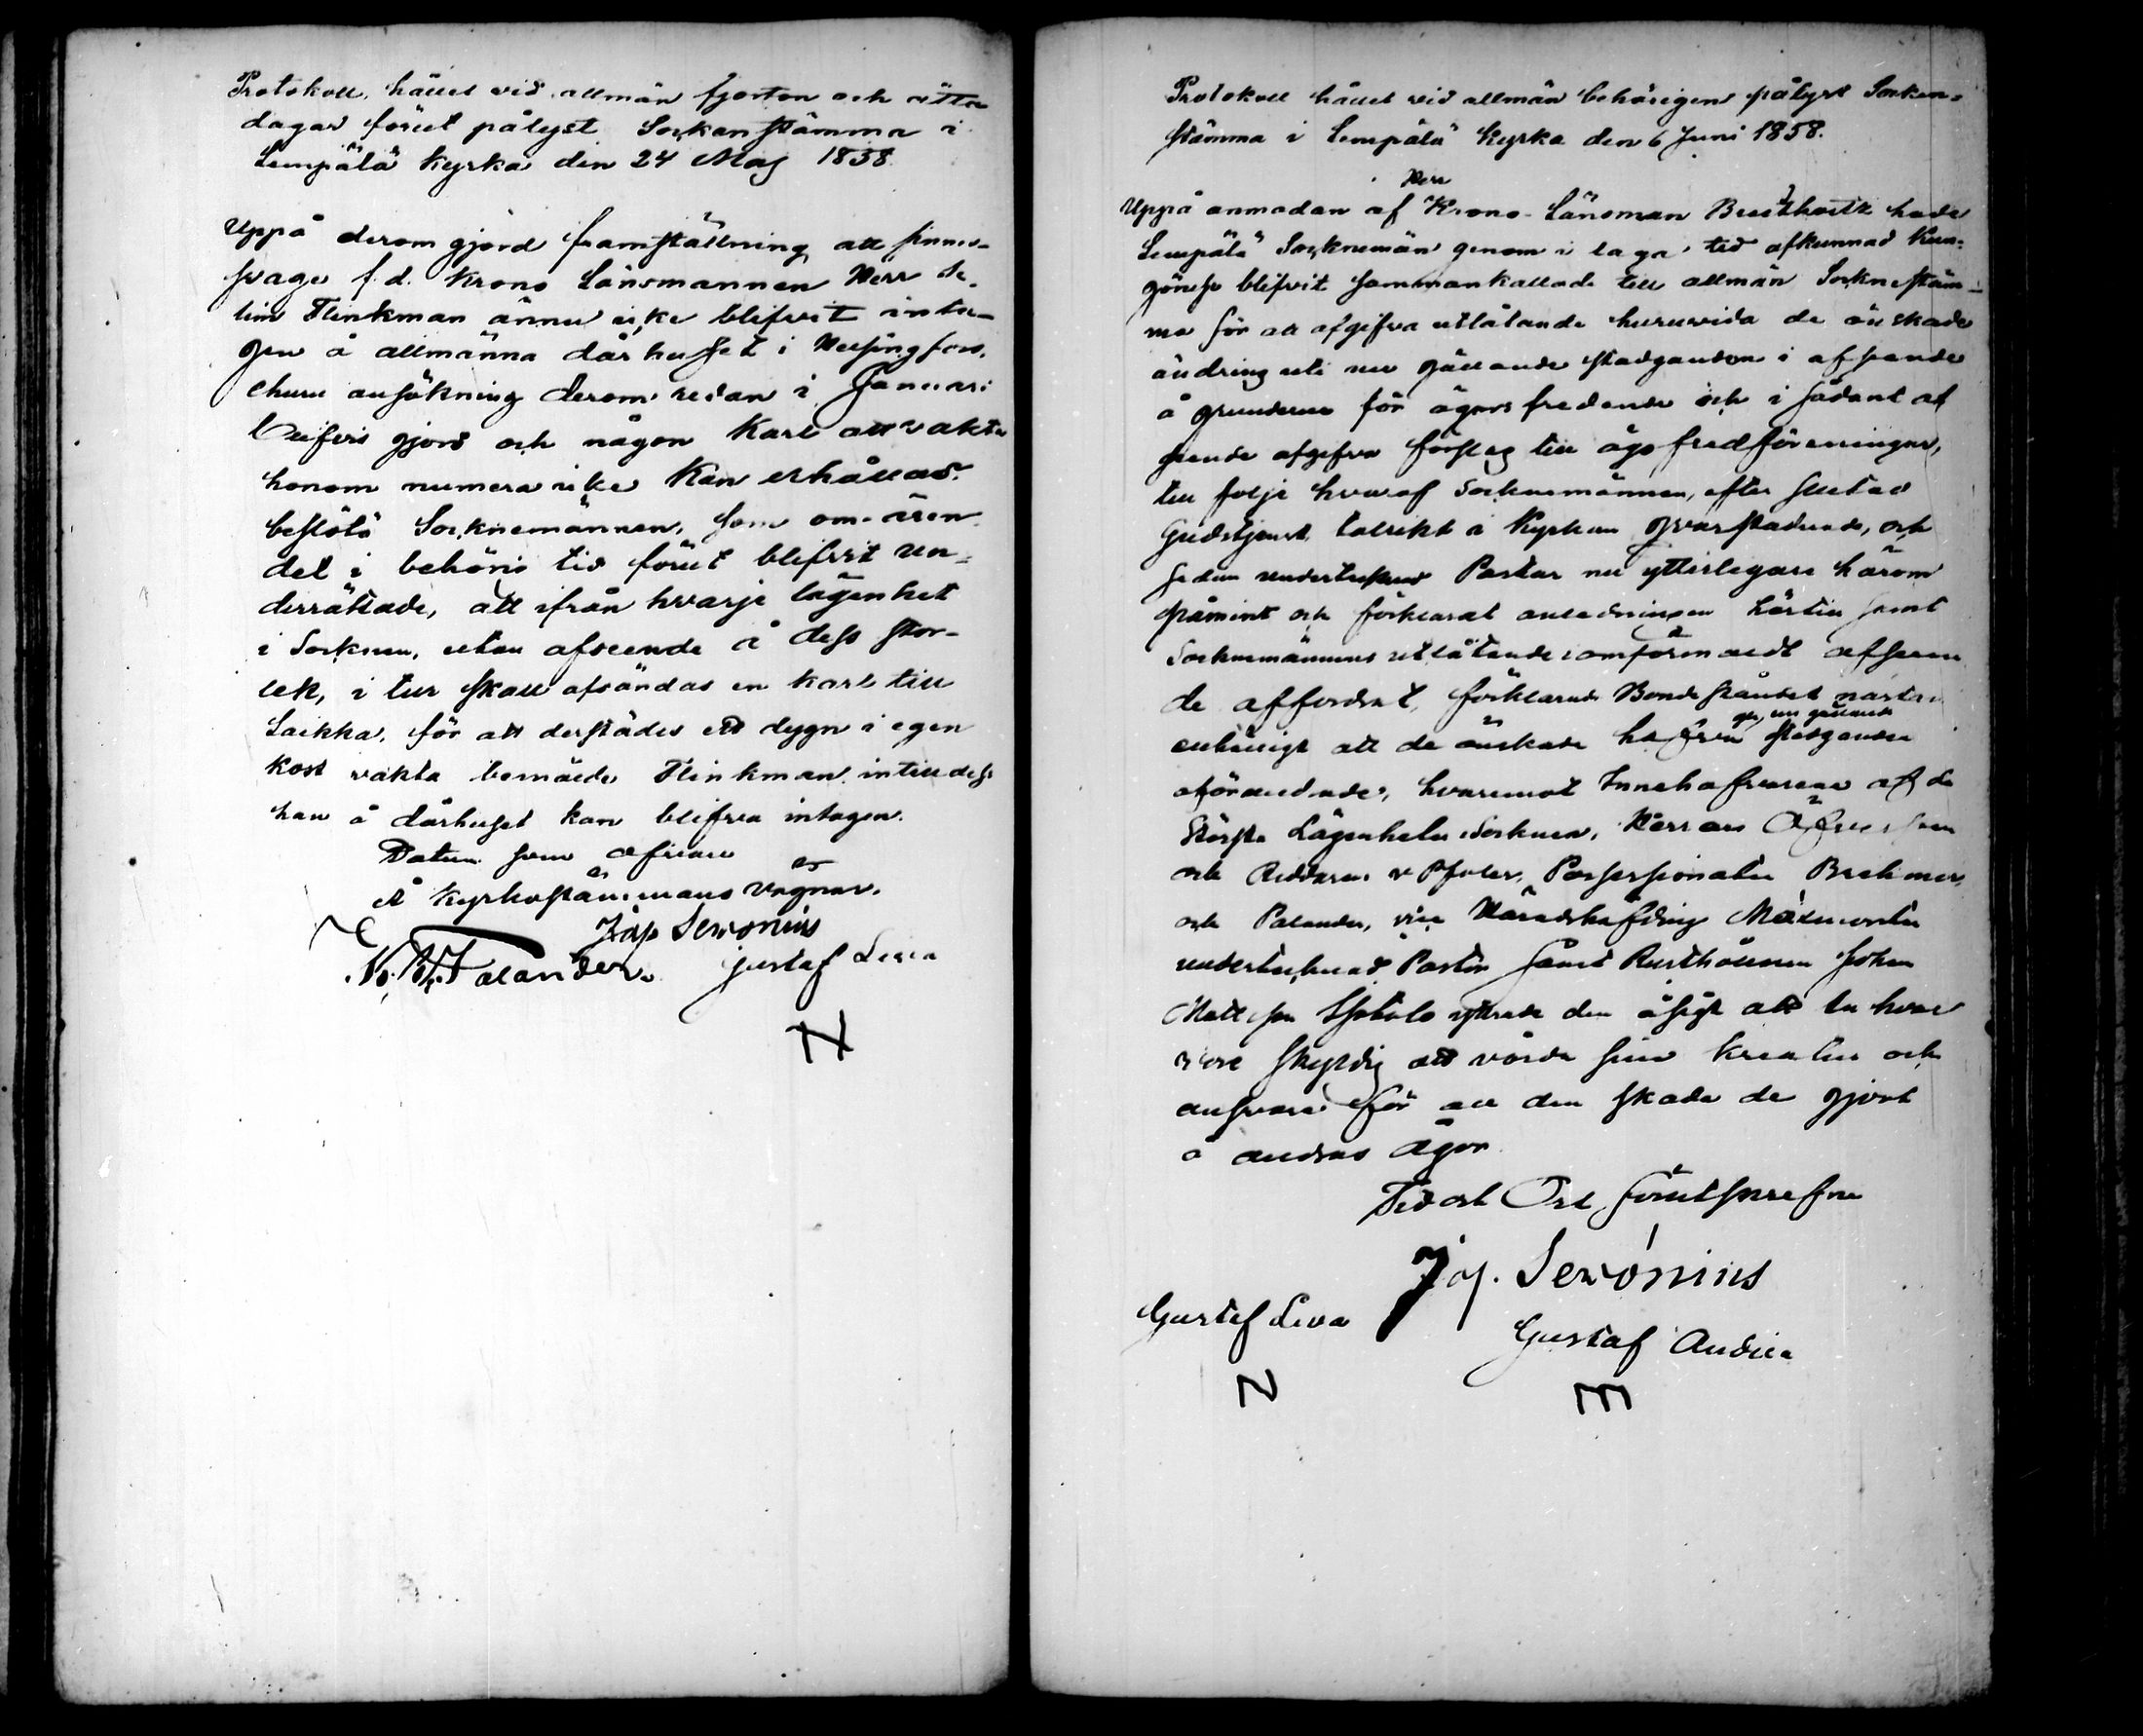 Protokoll, hållet vid allmän fjorton och åtta
dagar förut pålyst Sockenstämma i
Lempälä Kyrka den 24 Maj 1858.
Uppå derom gjord framställning att sinnes-
svage f.d. Krono Länsmannen Herr Se-
lim Flinkman ännu icke blifvit inta-
gen å allmänna dårhuset i Helsingfors,
ehuru ansökning derom redan i Januari
blifvis gjord och någon Karl att vakta
honom numera icke Kan erhållas.
beslöto Socknemännen, som om ären-
det i behörig tid förut blifvit un-
derrättade, att ifrån hvarje lägenhet
i Socknen, utan afseende å dess stor-
lek, i tur skall afsändas en karl till
Laikka, för att derstädes ett dygn i egen
kost vakta bemälde Flinkman intilldess
han å dårhuset kan blifva intagen.
Datum som ofvan
å Kyrkostämmans vägnar.
Jos. Seronius
Palander. Gustaf Leva
Protokoll hållet vid allmän behörigen pålyst Socken-
stämma i Lempälä Kyrka den 6 Juni 1858.
Herr
Uppå anmodan af Krono-Länsman hade
Lempälä Socknemän genom i laga tid afkunnad Kun-
görelse blifvit sammankallade till allmän Sockneståm-
ma för att afgifva utlåtande huruvida de önskade
ändring uti nu gällande stadganden i afseende
å grunderne för ägors fredande och i sådant af
seende afgifva förslag till ägofredföreningar,
till följe hvaraf Socknemännen, efter slutad
Gudstjenst talrikt i Kyrkan qvarstadnade, och
sedan undertecknad Pastor nu ytterligare härom
påmint och förklarat anledningen härtill samt
Socknemännens utlåtande i omförmäldt afseen
de affordrat, förklarade Bondeståndet nästan
nu gällande
enhälligt att de önskade hafva stadganden
oförändrade, hvaremot Innehafvarene af de
Största Lägenheter i Socknen, Herrar Öfversten
och Riddaren v Pfaler, Possessionater Brehmer
och Palander, vice Häradshöfding
undertecknad Pastor samt Rusthållaren Johan
Mattsson yttrade den åsigt att en hvar
vore skyldig att vårda sina kreatur och
ansvara för all den skada de gjort
å andras ägor.
Tid och Ort förutskrefne
Jos. Seronius
Gustaf Leva
Gustaf Andila